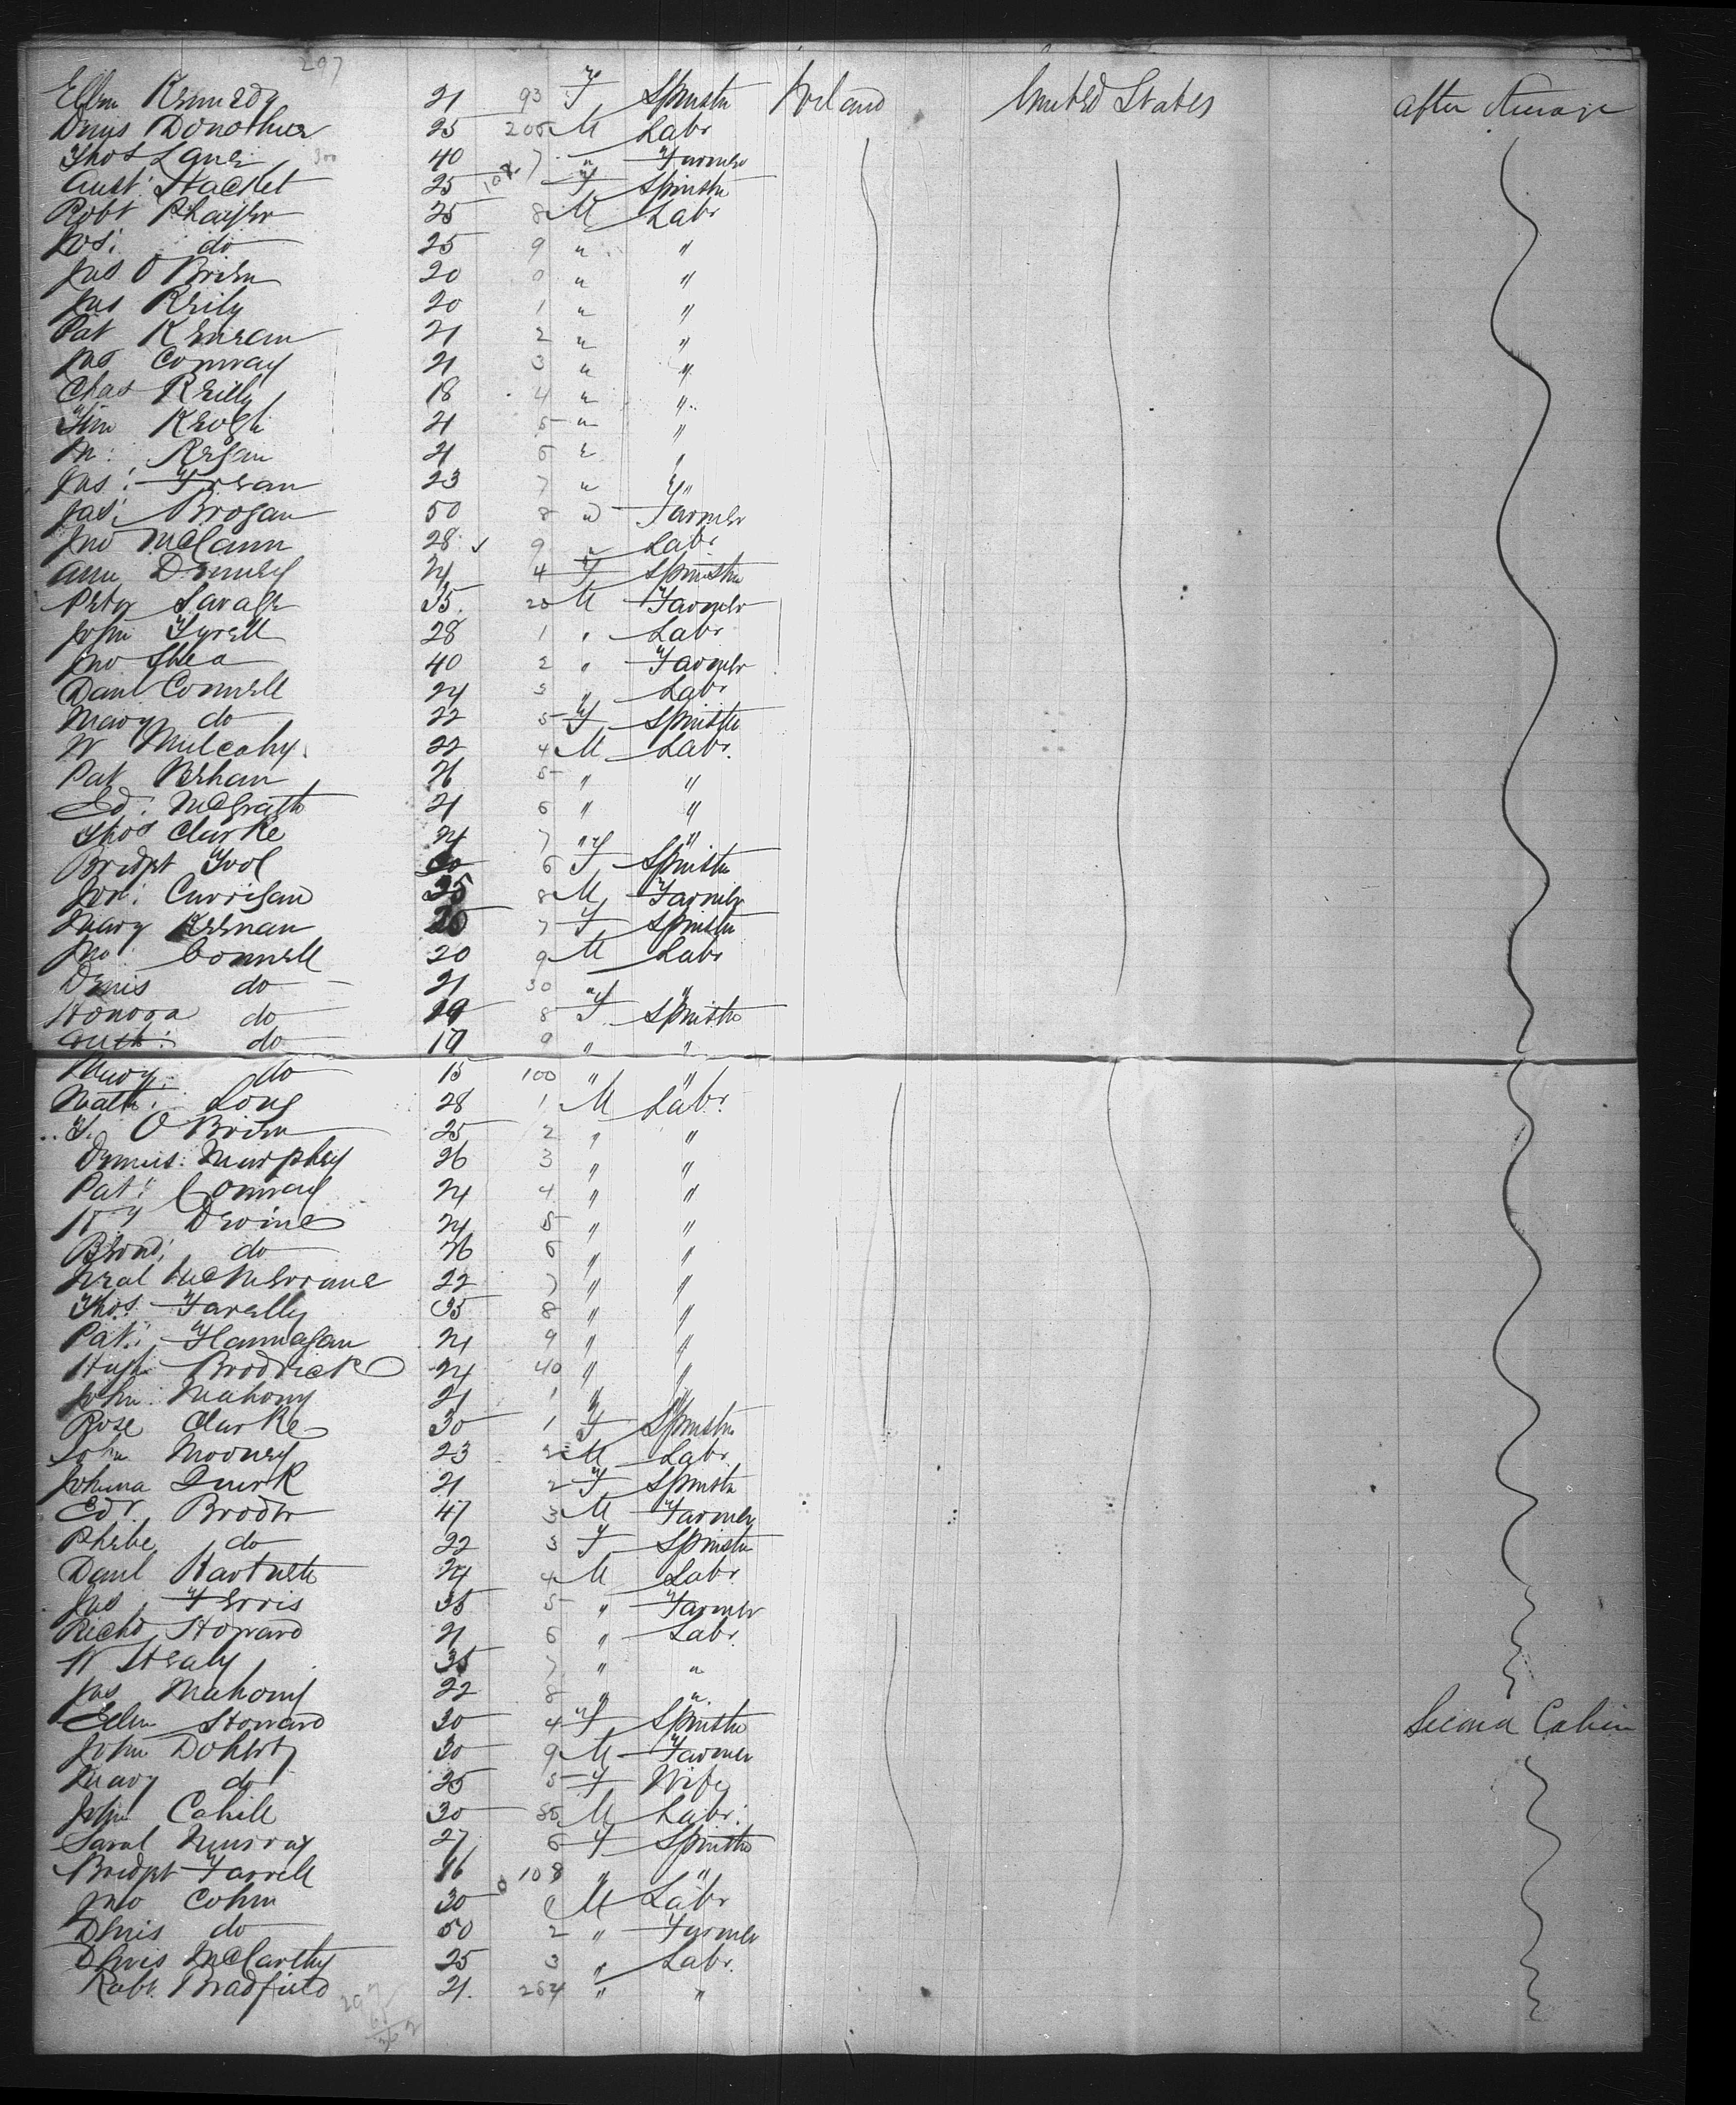 207
Ellen Kennedy 21 93 F Spinster Ireland United States After Steerage
Denis Donothue 25 205 M Labr
Thos Lane 300 40 7 " Farmer
Cust: Hacket 25 102 F Spinster
Robt Phayler 25 8 M Labr
Jos: do 25 9 " "
Jas O Brien 20 0 " "
Jas Reily 20 1 " "
Pat Keneean 21 2 " "
Jas Conway 21 3 " "
Chas Reilly 18 4 " "
Tim Keogh 21 5 " "
M: Regan 21 6 " "
Jas: Feean 23 7 " "
Jas: Brogan 50 8 " Farmer
Jno McCann 28 9 " Labr
Ann Denney 24 4 F Spinster
Peter Savage 35 20 M Farmer
John Tyrell 28 1 " Labr
Jno Shea 40 2 " Farmer
Danl Connell 24 3 " Labr
Mary do 22 5 F Spinster
W Mulcahy 22 4 M Labr
Pat Behan 26 5 " "
Ed: McGrath 21 6 " "
Thos Clarke 24 7 " "
Bridgt Tool 30 6 F Spinster
Jno: Carrigan 35 8 M Farmer
Mary Keenan 25 7 F Spinster
Jno: Connell 20 9 M Labr
Denis do 21 30 " "
Honora do 19 8 F Spinster
Cust: do 19 9 " "
Mary do 15 100 " "
Matt: Long 28 1 M Labr
T. O Brien 25 2 " "
Dennis Murphy 26 3 " "
Pat: Conway 24 4 " "
Hy Devine 24 5 " "
Bernd: do 26 6 " "
Neal McMerrane 22 7 " "
Thos. Farelly 35 8 " "
Pat: Flannagan 21 9 " "
Hugh Brodrick 24 40 " "
John Mahony 21 1 " "
Rose Clarke 30 1 F Spinster
John Mooney 23 2 M Labr
Johanna Quirk 21 2 F Spinster
Edr. Broder 47 3 M Farmer
Phebe do 22 3 F Spinster
Danl Hartnett 24 4 M Labr
Jas Ferris 35 5 " Farmer
Richd Howard 21 6 " Labr
W Healy 35 7 " "
Jas Mahony 22 8 " "
Ellen Howard 30 4 F Spinster Second Cabin
John Doherty 30 9 M Farmer
Mary do 25 5 F Wife
John Cahill 30 50 M Labr
Sarah Murray 27 6 F Spinster
Bridgt Farrell 16 108 " "
Jno Cohen 30 M Labr
Denis do 50 2 " Farmer
Denis McCarthy 25 3 " Labr
Robt. Bradfield 21 254 " "